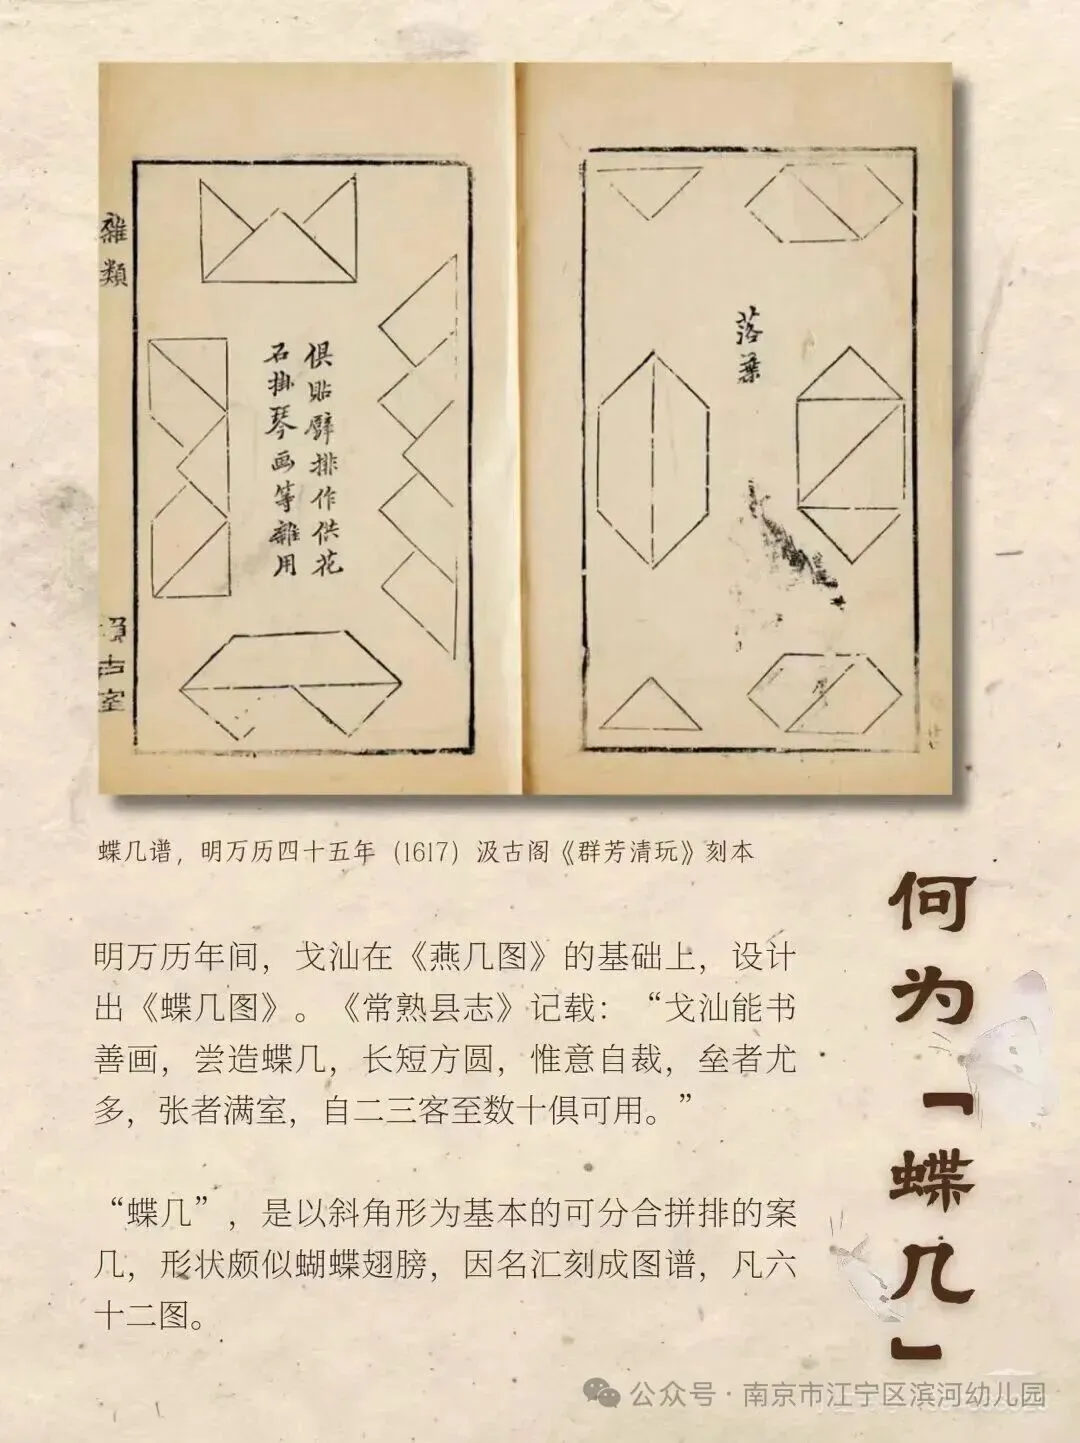 雜類
俱貼壁排作供花
石掛琴画等雜用
落葉
蝶几谱，明万历四十五年（1617）汲古阁《群芳清玩》刻本
何为「蝶几」
明万历年间，戈汕在《燕几图》的基础上，设计
出《蝶几图》。《常熟县志》记载：“戈汕能书
善画，尝造蝶几，长短方圆，惟意自裁，垒者尤
多，张者满室，自二三客至数十俱可用。”
“蝶几”，是以斜角形为基本的可分合拼排的案
几，形状颇似蝴蝶翅膀，因名汇刻成图谱，凡六
十二图。
公众号·南京市江宁区滨河幼儿园